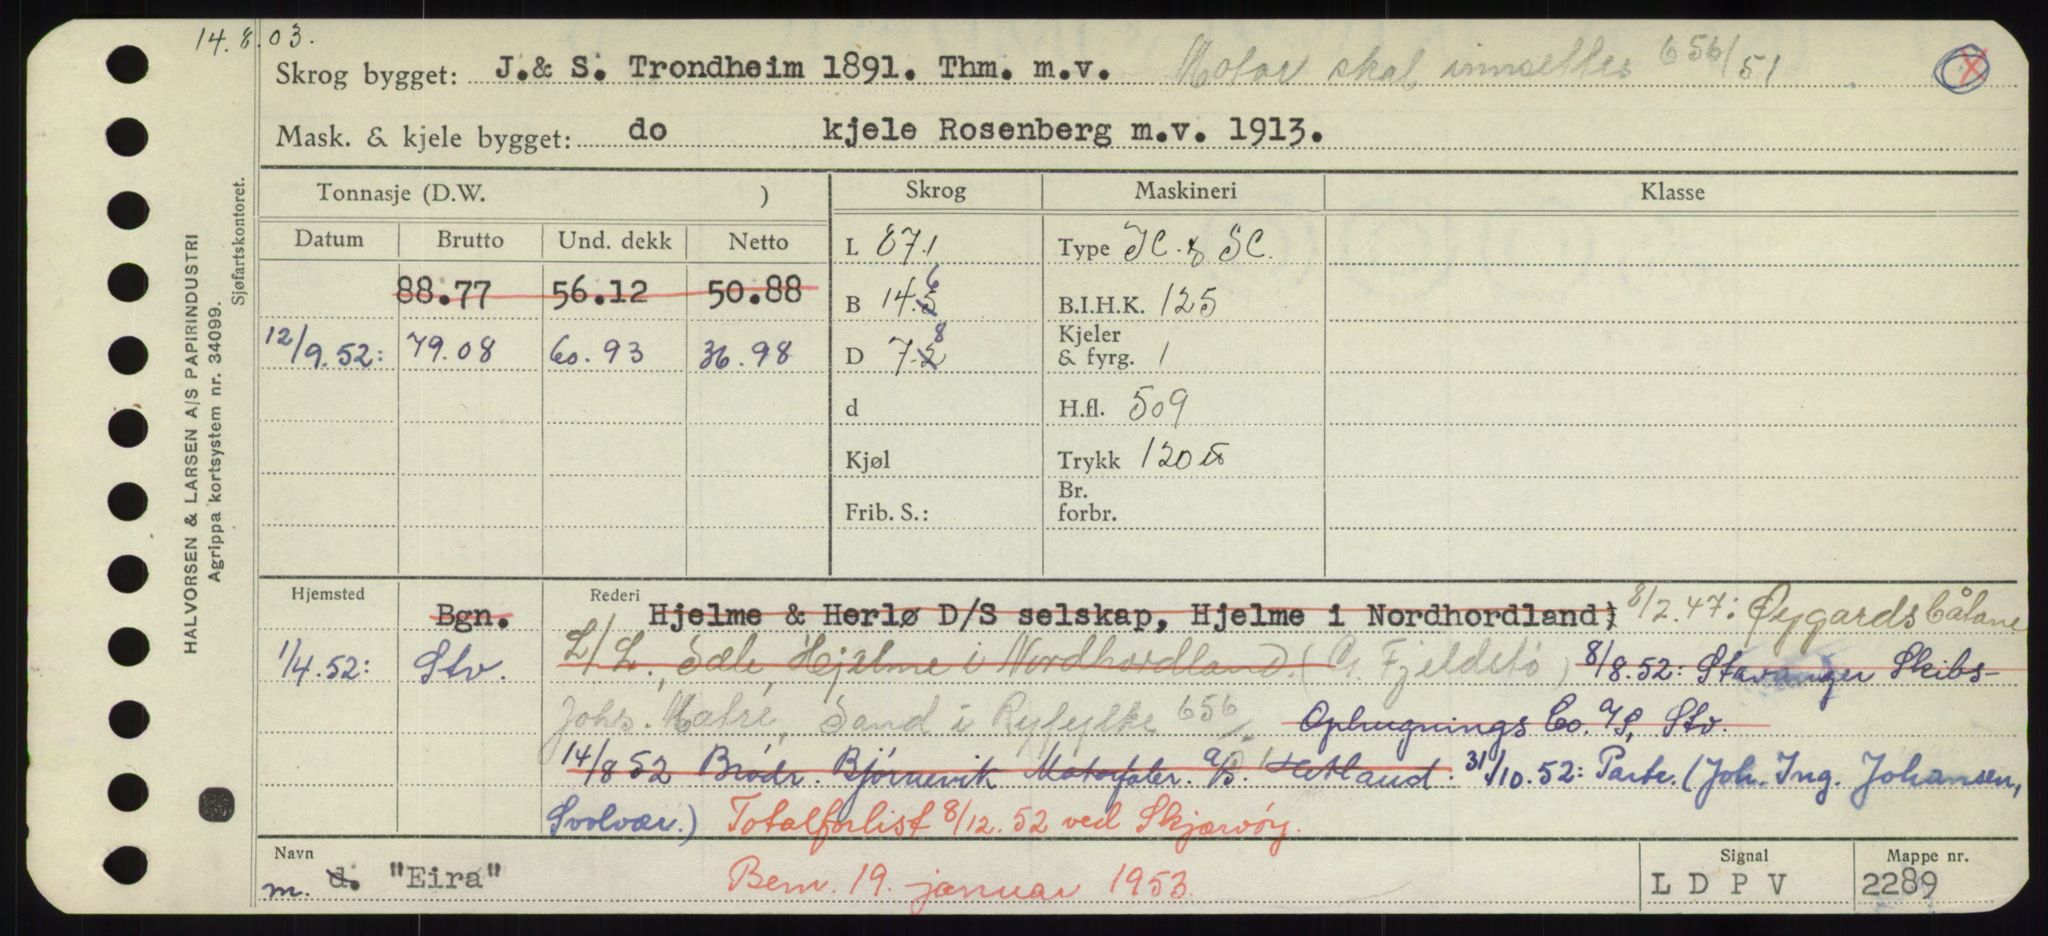 14.8.03.
Skrog bygget: J.& S. Trondheim 1891. Thm. m.v. Motor skal innsettes 656/51
Mask. & kjele bygget: do kjele Rosenberg m.v. 1913.
HALVORSEN & LARSEN A/S PAPIRINDUSTRI
Agrippa kortsystem nr. 34099.
Sjøfartskontoret.
Tonnasje (D.W. ) Skrog Maskineri Klasse
Datum Brutto Und. dekk Netto
L 87.1 Type JC. & SC.
88.77 56.12 50.88
B 14.5 6 B.I.H.K. 125
12/9.52: 79.08 60.93 36.98
D 7.2 8 Kjeler & fyrg. 1
d H.fl. 509
Kjøl Trykk 120 lb
Frib. S.: Br. forbr.
Hjemsted Rederi
Bgn. Hjelme & Herlø D/S selskap, Hjelme i Nordhordland; 8/2.47: Øygardsbåtane
1/4.52: Stv. L/L., Sæle, Hjelme i Nordhordland. (G. Fjeldstø) 8/8.52: Stavanger Skibs-
Johs. Matre, Sand i Ryfylke 656/ Ophugnings Co. A/S, Stv.
14/8 52 Brødr. Bjørnevik Motorfabr. A/S. Hetland. 31/10.52: Partr. (Joh. Ing. Johansen,
Svolvær.) Totalforlist 8/12.52 ved Skjærvøy.
Navn Signal Mappe nr.
m. d. "Eira" Bem. 19. januar 1953. L D P V 2289